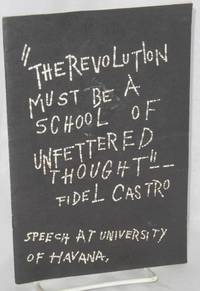 "THE REVOLUTION
MUST BE A
SCHOOL OF
UNFETTERED
THOUGHT"—
FIDEL CASTRO
SPEECH AT UNIVERSITY
OF HAVANA,